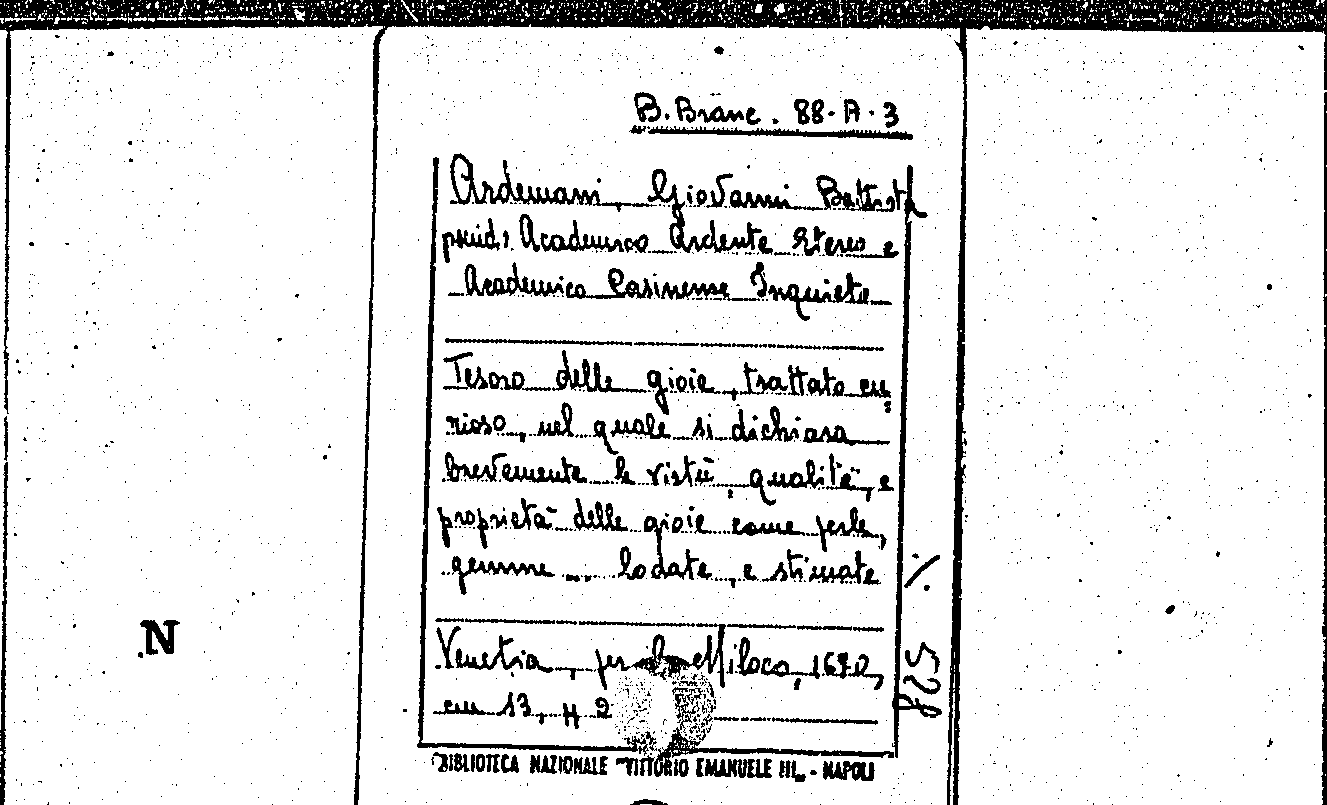 B. Branc. 88-A-3
Ardemani, Giovanni Battista
pseud. Academico Ardente Etereo e
Academico Casinense Inquieto
Tesoro delle gioie, trattato cu
rioso, nel quale si dichiara
brevemente le virtù, qualità, e
proprietà delle gioie come perle,
gemme ... lodate, e stimate
Venetia, per Miloco, 1670,
cm 13, H 2
./. 528
N
BIBLIOTECA NAZIONALE "VITTORIO EMANUELE III" - NAPOLI